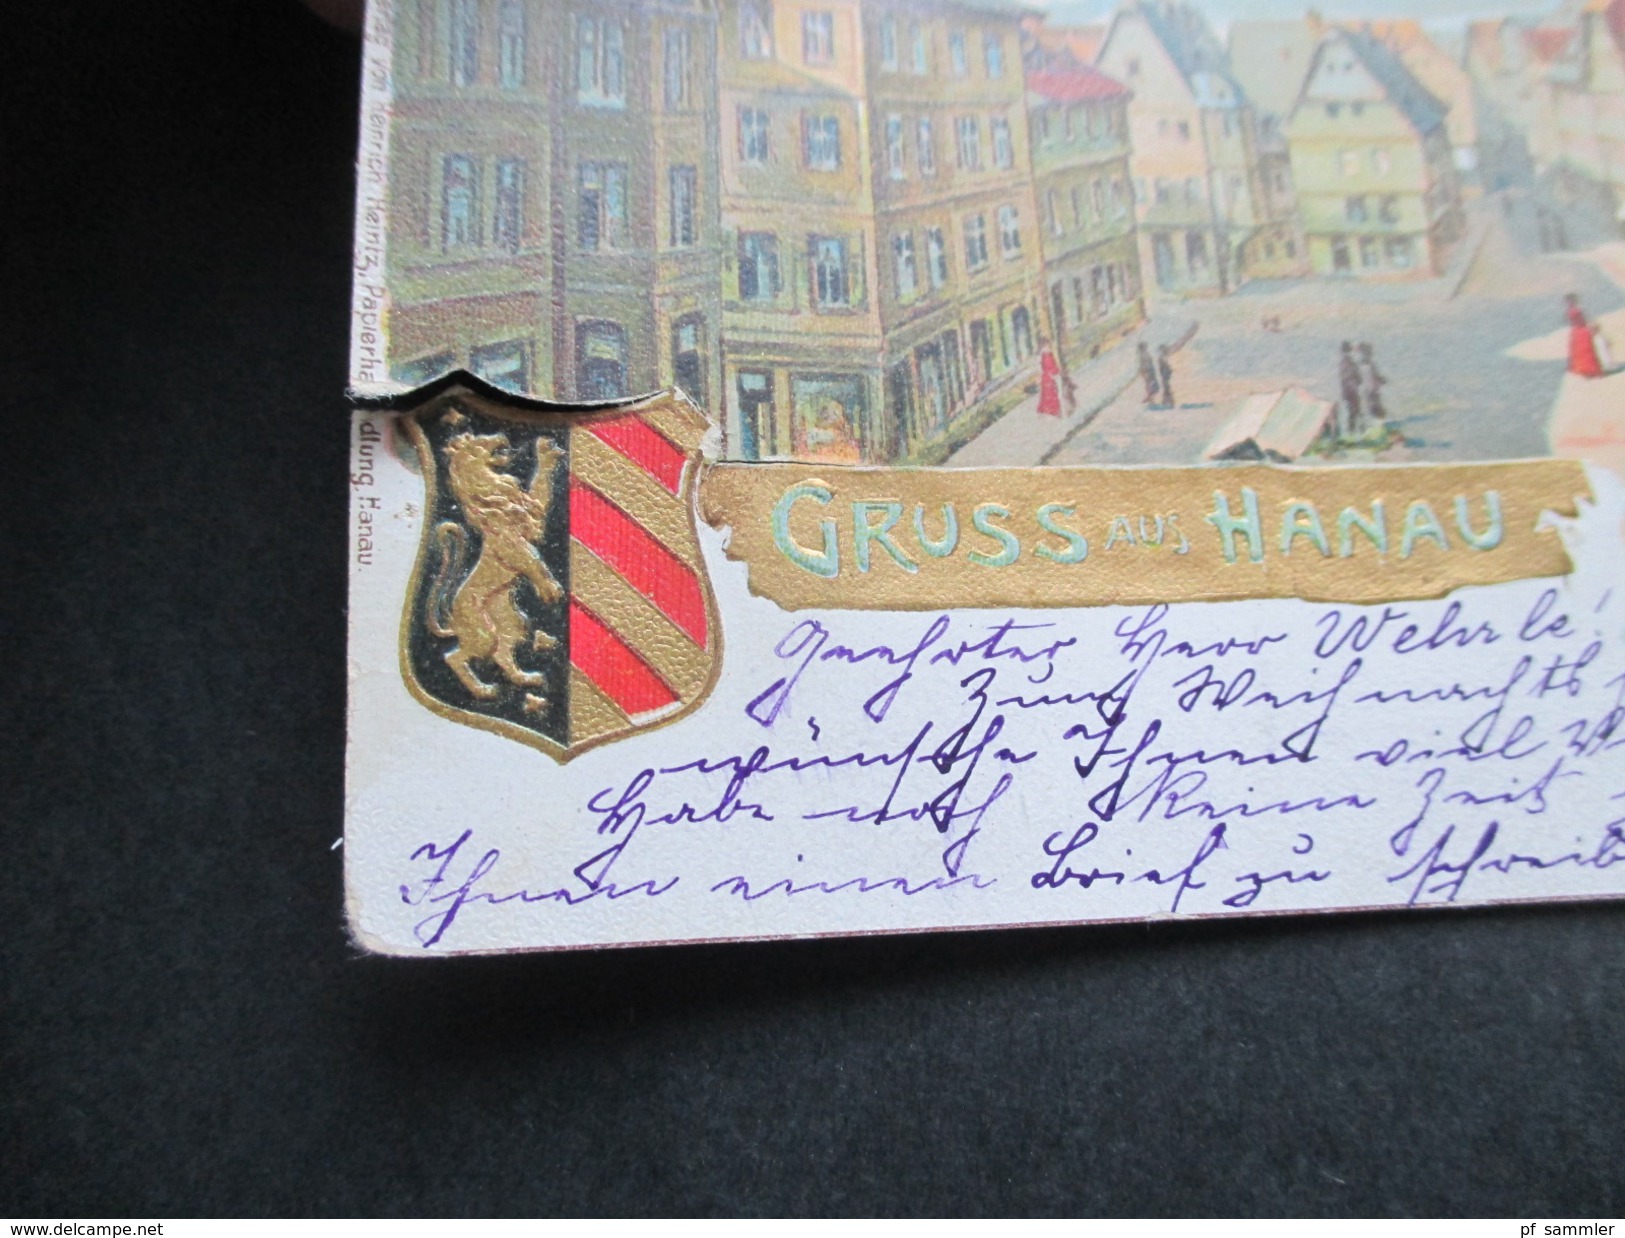 Verlag von Heinrich Heintz, Papierhandlung, Hanau.
GRUSS AUS HANAU
Geehrter Herr Wehrle!
Zum Weihnachts
wünsche Ihnen viel
Habe noch keine Zeit
Ihnen einen Brief zu schreib
delcampe.net
pf_sammler